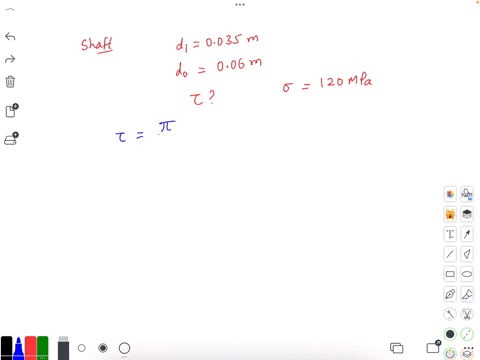 Shaft d₁ = 0.035 m
d₀ = 0.06 m
τ ? σ = 120 MPa
τ = π
T